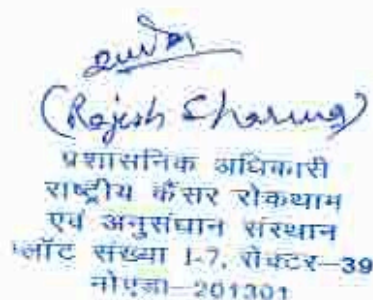 (Rajesh Sharma)
प्रशासनिक अधिकारी
राष्ट्रीय कैंसर रोकथाम
एवं अनुसंधान संस्थान
प्लॉट संख्या I-7, सेक्टर-39
नोएडा-201301